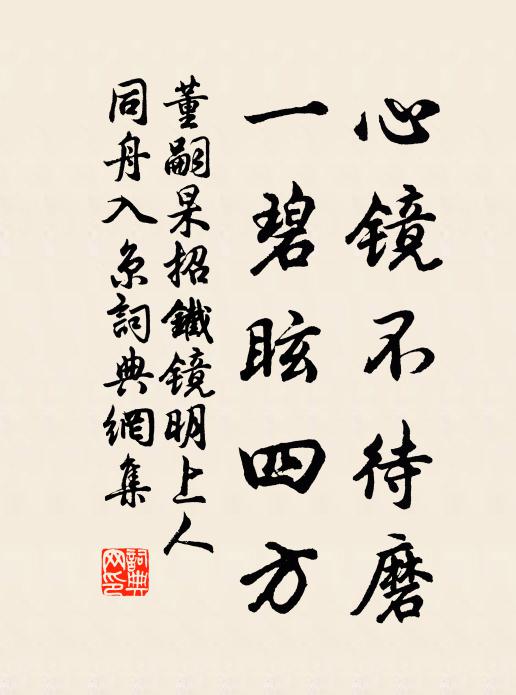 心镜不待磨
一碧眩四方
董嗣杲招鐵镜明上人
同舟入京詞典網集
詞典網印